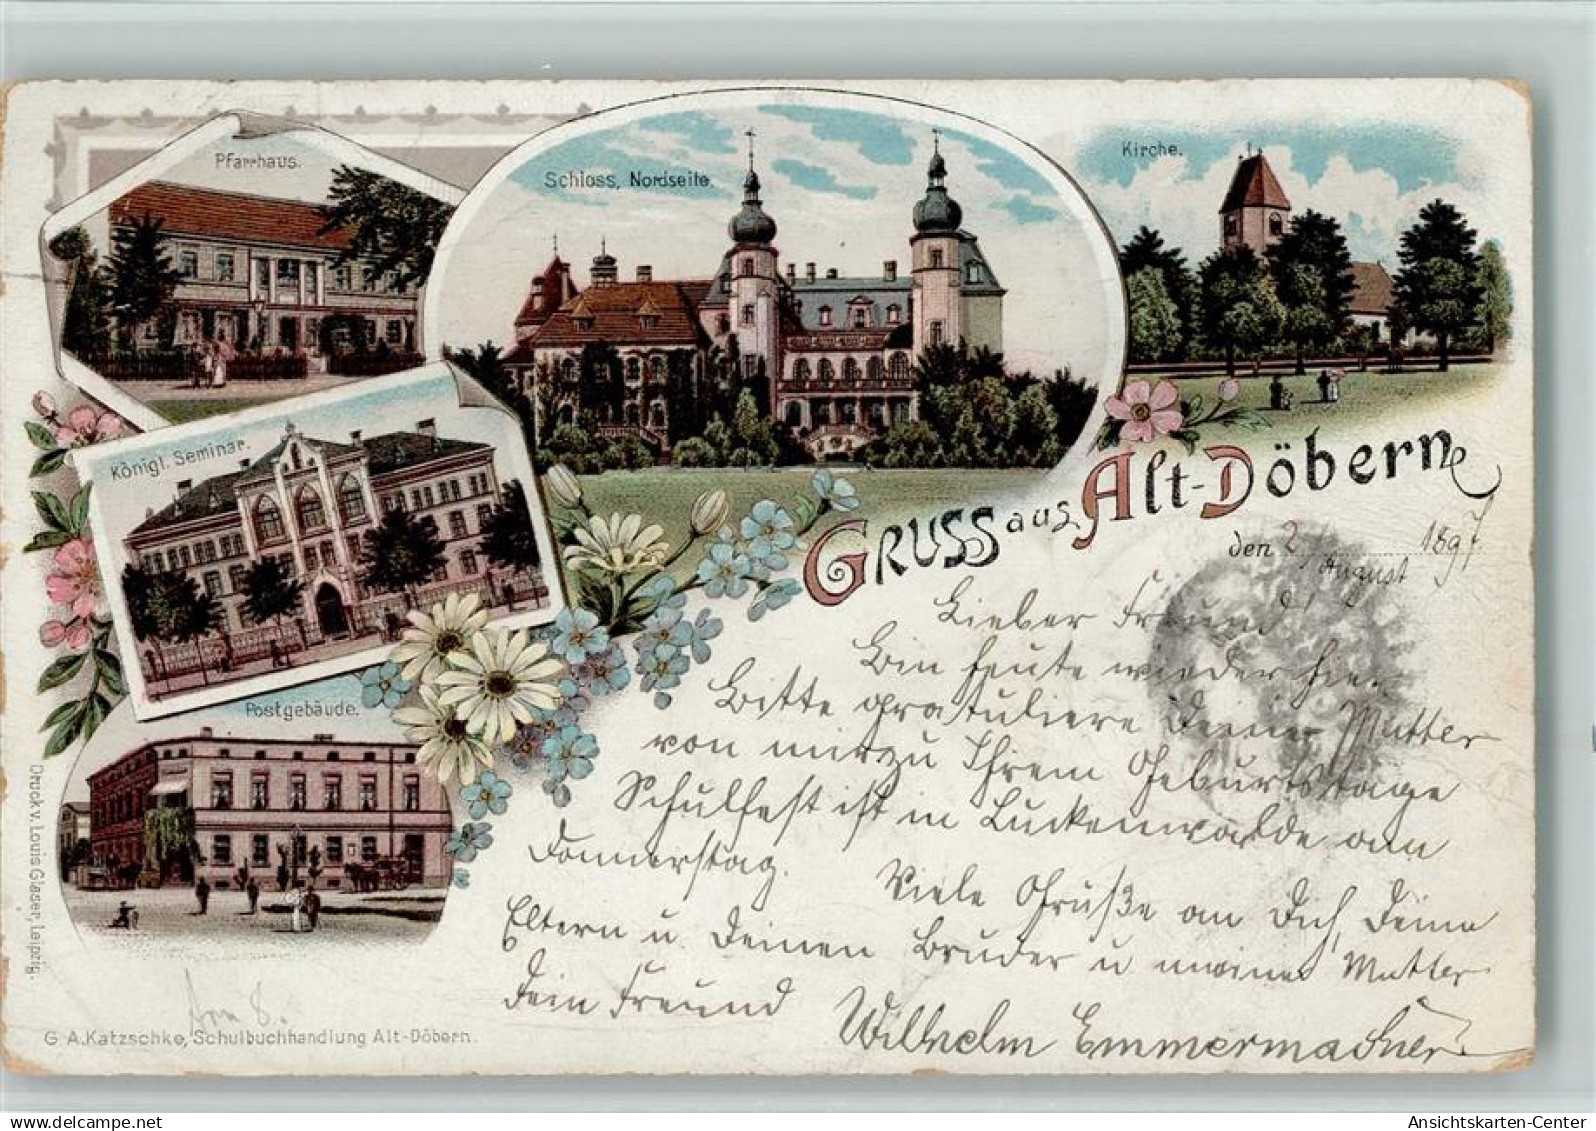 Pfarrhaus.
Schloss, Nordseite.
Kirche.
Königl. Seminar.
Postgebäude.
Gruss aus Alt-Döbern
den 2. August 1897
Lieber Freund!
Bin heute wieder hie.
Bitte gratuliere Deiner Mutter
von mir zu Ihrem Geburtstage
Schulfest ist in Luckenwalde am
Donnerstag. Viele Grüße an Dich, Deine
Eltern u. Deinen Bruder u meine Mutter
Dein Freund Wilhelm Emmermacher
Druck v. Louis Glaser, Leipzig.
G. A. Katzschke, Schulbuchhandlung Alt-Döbern.
www.ansichtskarten-center.de
Ansichtskarten-Center